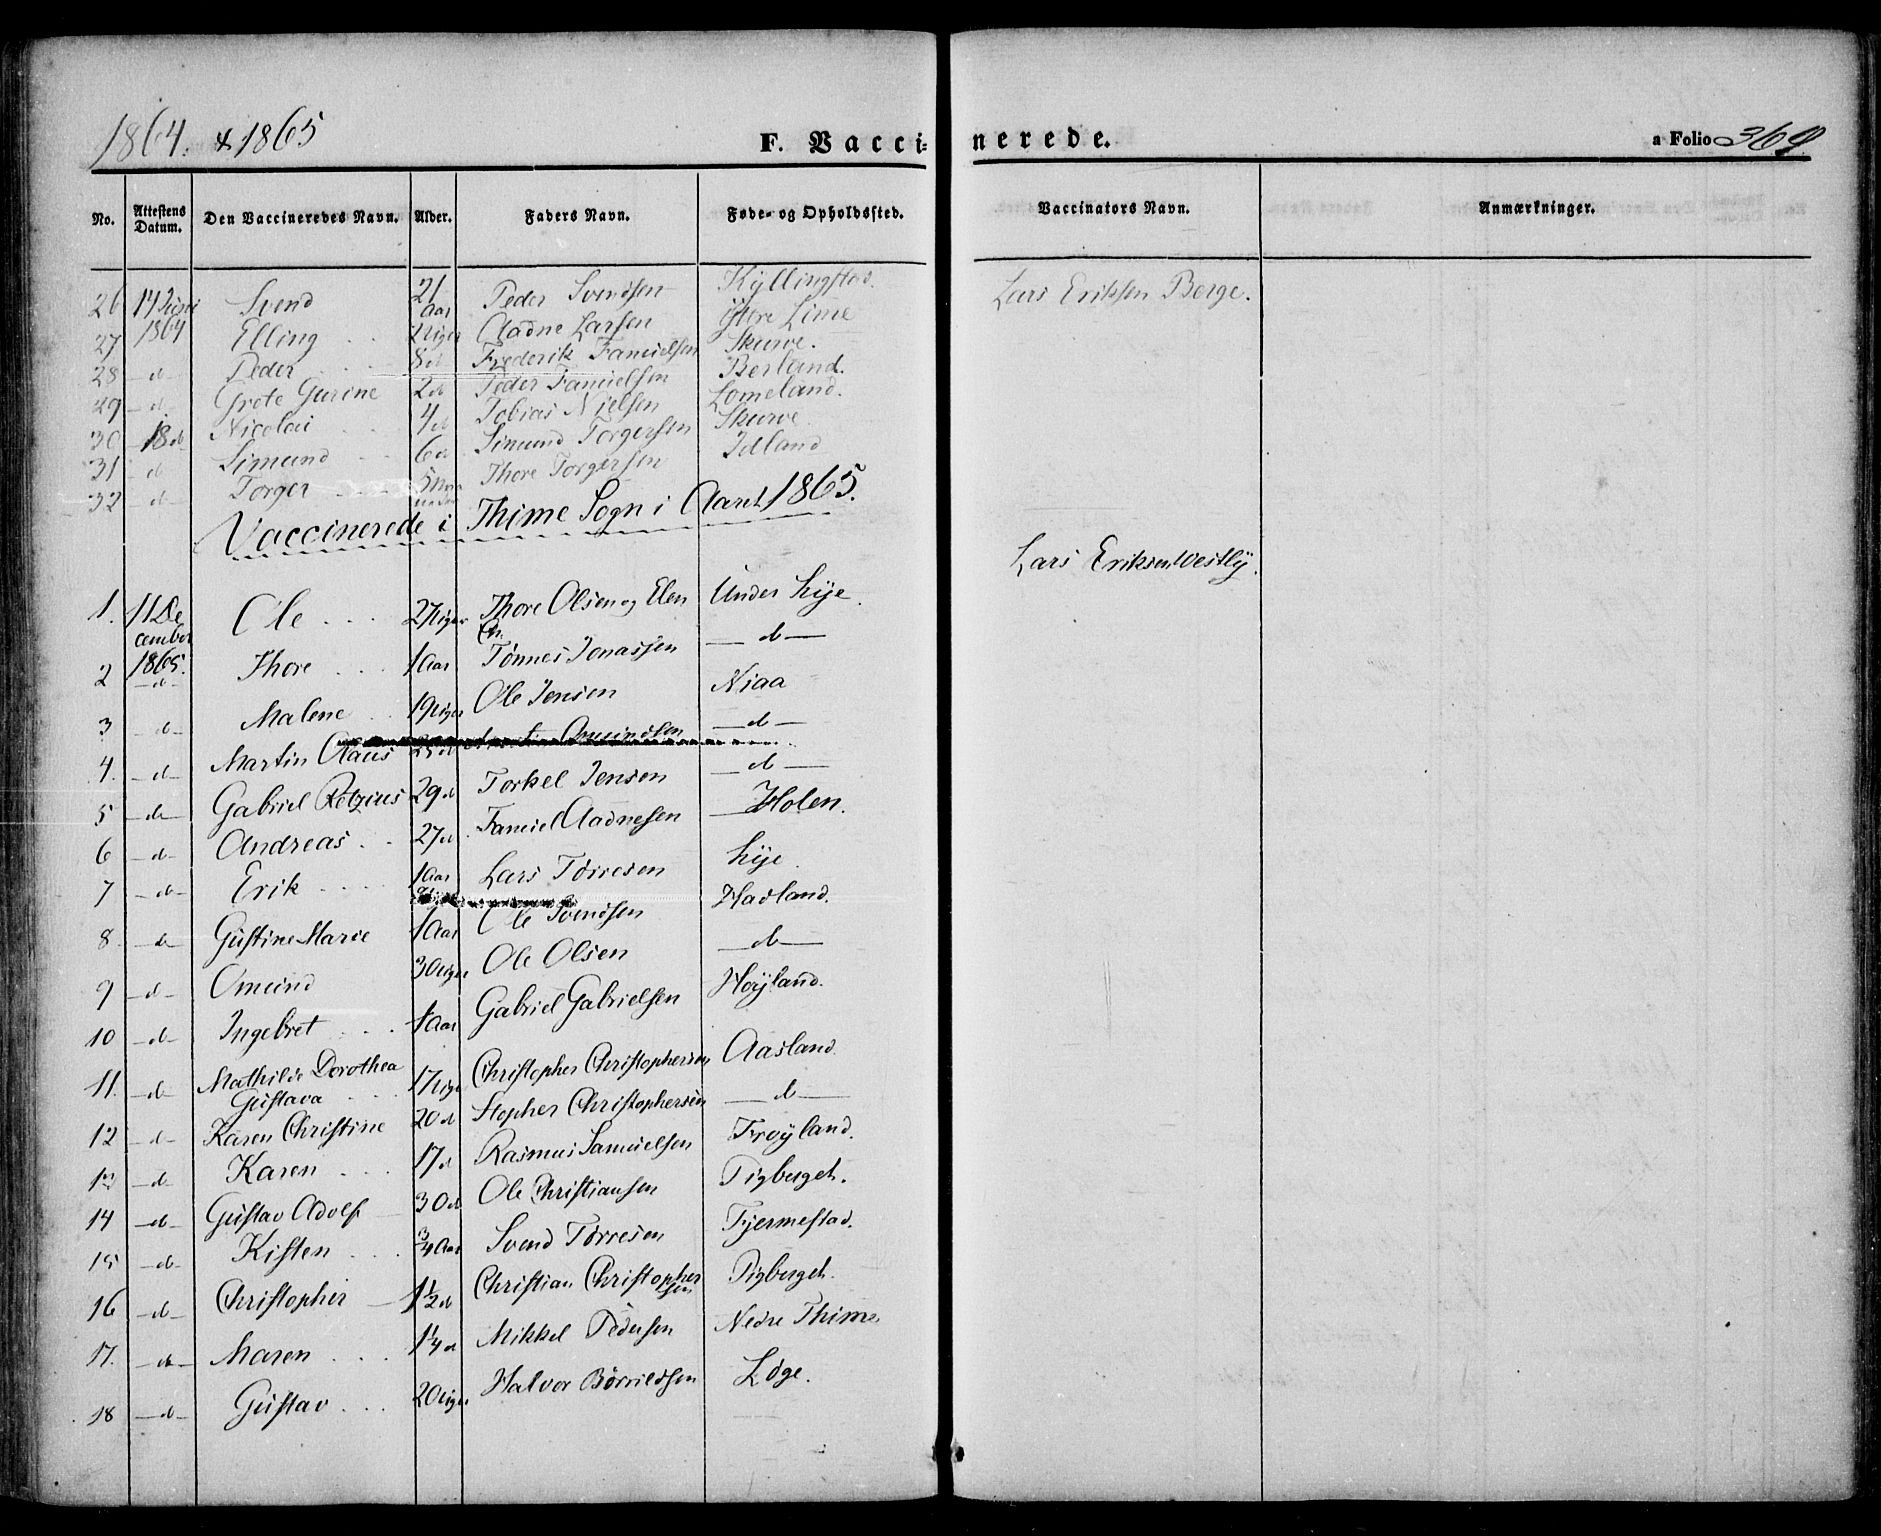 1864. & 1865
F. Vaccinerede. a Folio 369
No. Attestens Datum. Den Vaccineredes Navn. Alder. Faders Navn. Føde- og Opholdssted. Vaccinators Navn. Anmærkninger.
26 14 Juni 1864 Svend 21 Aar Peder Svendsen Kyllingstad. Lars Eriksen Berge.
27 Elling Aadne Larsen Ystre Lime
28 -d- Peder 8 d Frederik Samuelsen Skurve.
29 -d- Grete Gurine 2 d Peder Samuelsen Berland.
30 18 d Nicolai 4 d Tobias Nielsen Lomeland.
31 d Simund 6 d Simund Torgersen Skurve
32 -d- Torger 5 Thore Torgersen Idland
Vaccinerede i Thime Sogn i Aaret 1865.
Lars Eriksen Vestly.
1. 11 De cember 1865. Ole 27 Uger Thore Olsen og Elen Under Lye.
2 -d- Thore 1 Aar Tønnes Jonassen -d-
3 -d- Malene 19 Uger Ole Jensen Njaa
4. -d- Martin Olaus 25 d Omundsen -d-
5 -d- Gabriel Retzius 29 d Torkel Jensen -d-
6 -d- Andreas 27 d. Samuel Aadnesen Holen.
7 -d- Erik 1 Aar Lars Tørresen Lye.
8 -d- Gustine Marie 1 Aar Ole Svendsen Hadland.
9 -d- Omund 30 Uger Ole Olsen -d-
10 -d- Ingebret 1 Aar Gabriel Gabrielsen Høyland.
11. -d- Mathilde Dorothea Gustava 17 Uger Christopher Christophersen Aasland.
12 -d- Karen Christine 20 d Stopher Christophersen -d-
13 -d- Karen 17 d Rasmus Samuelsen Frøyland.
14 -d- Gustav Adolf 30 d Ole Christiansen Tigberget.
15 -d- Kisten 3/4 Aar Svend Tørresen Fjermestad.
16 -d- Christopher 1 1/2 d Christian Christophersen Tigberget.
17. -d- Maren 1 1/4 d Mikkel Pedersen Nedre Thime
18 -d- Gustav 20 Uger Halvor Børrildsen Løge.